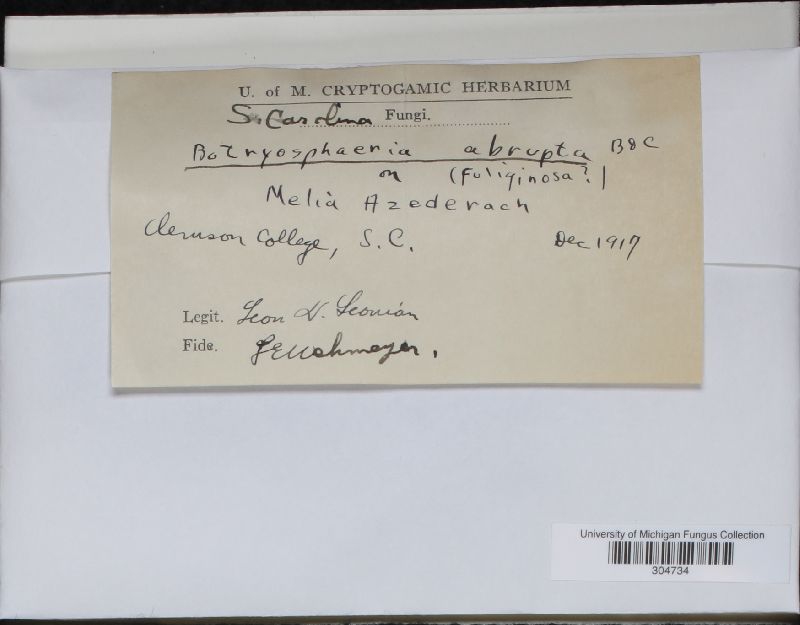 U. of M. CRYPTOGAMIC HERBARIUM
S. Carolina Fungi.
Botryosphaeria abrupta B&C
on (fuliginosa?)
Melia Azederach
Clemson College, S.C. Dec 1917
Legit. Leon H. Leonian
Fide. LEWehmeyer.
University of Michigan Fungus Collection
304734